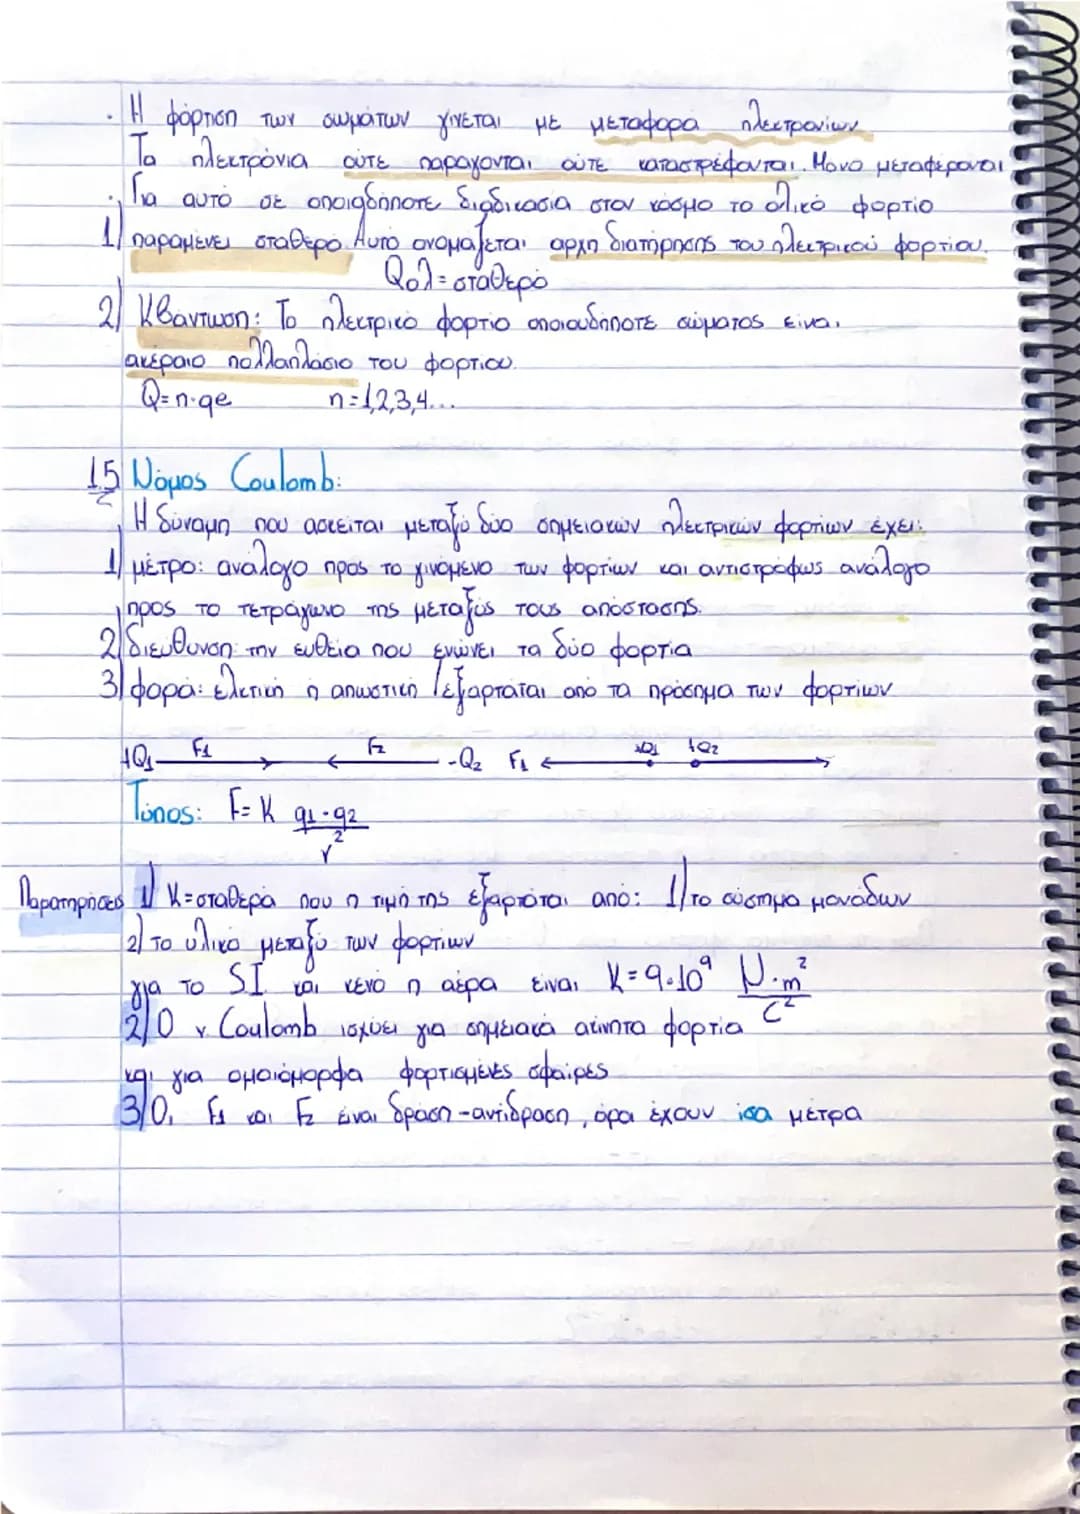 . Η φόρτιση των σωμάτων γίνεται με μεταφορά ηλεκτρονίων
Τα ηλεκτρόνια ούτε παραγονται ούτε καταστρέφονται. Μονο μεταφέρονται
. Για αυτό σε οποιαδήποτε διαδικασία στον κόσμο το ολικό φορτίο
1) παραμένει σταθερό. Αυτό ονομαζεται αρχη διατήρησης του ηλεκτρικού φορτίου.
Qολ = σταθερό
2) Κβαντωση: Το ηλεκτρικό φορτίο οποιουδήποτε σώματος είναι
ακέραιο πολλαπλάσιο του φορτίου.
Q = n·qe n = 1,2,3,4...
1.5 Νόμος Coulomb:
Η δύναμη που ασκείται μεταξύ δύο σημειακών ηλεκτρικών φορτίων έχει:
1) μέτρο: ανάλογο προς το γινόμενο των φορτίων και αντιστρόφως ανάλογο
προς το τετράγωνο της μεταξύς τους απόστασης.
2) διεύθυνση: την ευθεία που ενώνει τα δύο φορτία
3) φορά: ελκτική ή απωστική / εξαρτάται από τα πρόσημα των φορτίων
+Q1 F1 F2 -Q2 F1 +Q1 +Q2
Τύπος: F = K q1·q2
r²
Παρατηρήσεις 1) K = σταθερά που η τιμή της εξαρτάται από: 1) το σύστημα μονάδων
2) το υλικό μεταξύ των φορτίων
για το SI και κενό η αέρα είναι K = 9·10⁹ N·m²
C²
2) Ο ν. Coulomb ισχύει για σημειακά ακίνητα φορτία
και για ομοιόμορφα φορτισμένες σφαίρες
3) Οι F1 και F2 είναι δράση-αντίδραση, άρα έχουν ίσα μέτρα